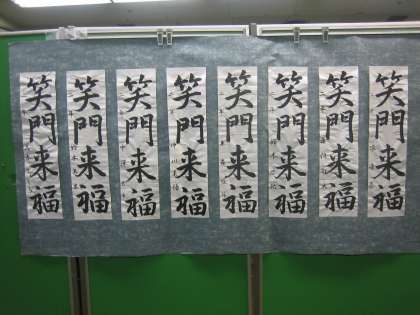 笑門来福
笑門来福
笑門来福
笑門来福
笑門来福
笑門来福
笑門来福
笑門来福